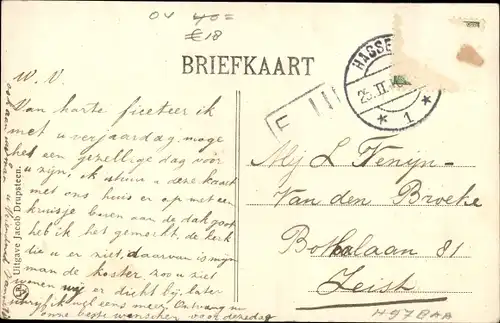 04 40=
£18
BRIEFKAART
HASSE
25.II
1
F
W. V.
Van harte ficeteer ik
met u verjaardag moge
het een gezellige dag voor
u zijn, ik stuur u deze kaart
met ons huis er op met een
kruisje boven aan de dakgoot
heb ik het gemerkt, de kerk
die u er ziet, daarvan is mijn
man de koster, zoo u ziet
wonen wij er dicht bij later
schryf ik wel eens meer. Ontvang u
onze beste wenschen voor deze dag
Uitgave Jacob Drupsteen.
Mej L Venyn-
Van den Broeke
laan 81
Zeist